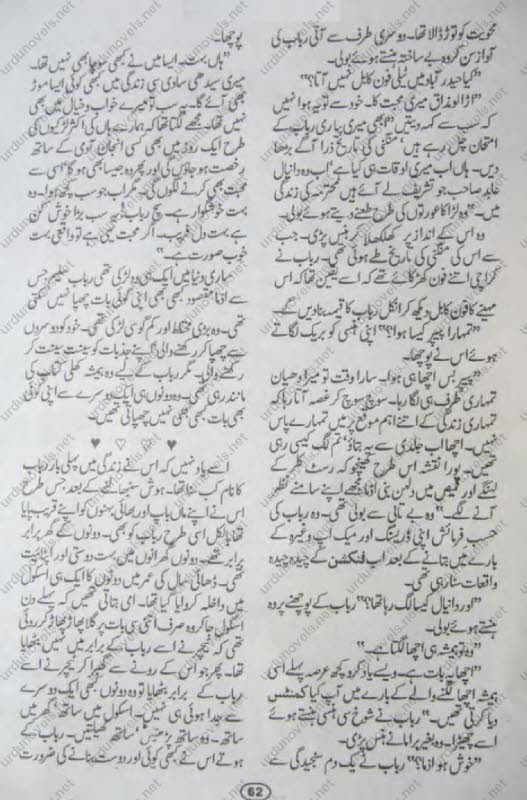 محویت کو توڑ ڈالا تھا۔ دوسری طرف سے آتی رباب کی
آواز سن کر وہ بے ساختہ ہنستے ہوئے بولی۔
"کیا حیدر آباد میں ٹیلی فون کا بل نہیں آتا؟"
"اڑا لو مذاق میری محبت کا۔ خود سے تو یہ ہوا نہیں
کہ سب سے کہہ دیتیں "ابھی میری پیاری رباب کے
امتحان چل رہے ہیں' منگنی کی تاریخ ذرا آگے بڑھا
دیں۔ ہاں اب میری اوقات ہی کیا ہے' اب وہ دانیال
عابد صاحب جو تشریف لے آئے ہیں محترمہ کی زندگی
میں۔" وہ لڑاکا عورتوں کی طرح طعنے دیتے ہوئے بولی۔
وہ اس کے انداز پر کھلکھلا کر ہنس پڑی۔ جب
سے اس کی منگنی کی تاریخ طے ہوئی تھی۔ رباب نے
کراچی اتنے فون کھڑکائے تھے کہ اسے یقین تھا کہ اس
مہینے کا فون کا بل دیکھ کر انکل رباب کا قیمہ بنا دیں گے۔
"تمہارا پیپر کیسا ہوا؟" اپنی ہنسی کو بریک لگاتے
ہوئے اس نے پوچھا۔
"پیپر بس اچھا ہی ہوا۔ سارا وقت تو میرا دھیان
تمہاری طرف ہی لگا رہا۔ سوچ سوچ کر غصہ آتا رہا کہ
تمہاری زندگی کے اتنے اہم موقع پر میں تمہارے پاس
نہیں۔ اچھا اب جلدی سے یہ بتاؤ' تم لگ کیسی رہی
تھیں۔ پورا نقشہ اس طرح کھینچو کہ رسٹ کلر کے
لہنگے اور قمیص میں دلہن بنی انا مجھے اپنے سامنے نظر
آنے لگے۔" وہ بے تابی سے بولی تھی۔ وہ رباب کی
حسب فرمائش اپنی ڈریسنگ اور میک اپ وغیرہ کے
بارے میں بتانے کے بعد اب فنکشن کے چیدہ چیدہ
واقعات سنا رہی تھی۔
"اور دانیال کیسا لگ رہا تھا؟" رباب کے پوچھنے پر وہ
ہنستے ہوئے بولی۔
"وہ تو ہمیشہ ہی اچھا لگتا ہے۔"
"اچھا یہ بات ہے۔ ویسے یاد کرو کچھ عرصہ پہلے اسی
ہمیشہ اچھا لگنے والے کے بارے میں آپ کیا کمنٹس
دیا کرتی تھیں۔" رباب نے شوخ سی ہنسی ہنستے ہوئے
اسے چھیڑا۔ وہ بغیر برا مانے ہنس پڑی۔
"خوش ہو انا؟" رباب نے یک دم سنجیدگی سے
پوچھا۔
"ہاں بہت۔ ایسا میں نے کبھی سوچا بھی نہیں تھا۔
میری سیدھی سادی سی زندگی میں بھی کوئی ایسا موڑ
بھی آئے گا۔ یہ سب تو میرے خواب و خیال میں بھی
نہیں تھا۔ مجھے لگتا تھا کہ ہمارے ہاں کی اکثر لڑکیوں کی
طرح ایک روز میں بھی کسی انجان آدمی کے ساتھ
رخصت ہو جاؤں گی اور پھر وہ جیسا بھی ہو گا' اسی سے
محبت بھی کرنے لگوں گی۔ مگر اب جو سب کچھ ہوا۔ وہ
بہت خوشگوار ہے۔ سچ رباب! یہ سب بڑا خوش کن
ہے بہت دل فریب۔ اگر محبت یہی ہے تو واقعی بہت
خوب صورت ہے۔"
ساری دنیا میں ایک ہی وہ لڑکی تھی رباب علیم جس
سے انا مقصود کبھی بھی اپنی کوئی بات چھپا نہیں سکتی
تھی۔ وہ بڑی محتاط اور کم گو سی لڑکی تھی۔ خود کو دوسروں
سے چھپا کر رکھنے والی' اپنے جذبات کو سینت سینت کر
رکھنے والی۔ مگر رباب کے لیے وہ ہمیشہ کھلی کتاب کی
مانند رہی تھی۔ وہ دونوں ہی ایک دوسرے سے اپنی کوئی
بھی بات کبھی بھی نہیں چھپاتی تھیں۔
♥ ▷ ▷ ♥
اسے یاد نہیں کہ اس نے زندگی میں پہلی بار رباب
کا نام کب سنا تھا۔ ہوش سنبھالنے کے بعد جس طرح
اس نے اپنے ماں باپ اور بھائی بہنوں کو اپنے قریب پایا
تھا بالکل اسی طرح رباب کو بھی۔ دونوں کے گھر برابر
برابر تھے۔ دونوں گھرانوں میں بہت دوستی اور اپنائیت
تھی۔ ڈھائی سال کی عمر میں دونوں کا ایک ہی اسکول
میں داخلہ کروایا گیا تھا۔ امی بتاتی تھیں کہ پہلے دن
اسکول جا کر وہ صرف اتنی سی بات پر گلا پھاڑ پھاڑ کر روئی
تھی کہ ٹیچر نے اسے رباب کے برابر میں نہیں بٹھایا
تھا۔ پھر جو اس کے رونے سے گھبرا کر ٹیچر نے اسے
رباب کے برابر بٹھایا تو وہ دونوں کبھی ایک دوسرے
سے جدا ہوئی ہی نہیں۔ اسکول میں ساتھ' گھر میں
ساتھ۔ وہ ساتھ پڑھتیں' ساتھ کھیلتیں۔ رباب کے
ہوتے اس نے کبھی کوئی اور دوست بنانے کی ضرورت
62
urdunovels.net